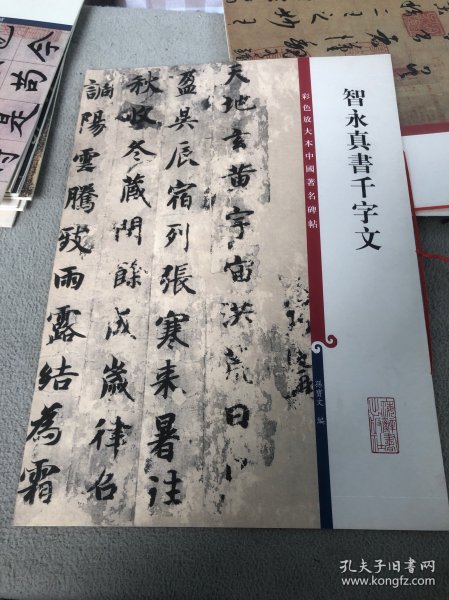 智永真書千字文
彩色放大本中國著名碑帖
孫寶文 編
天地玄黄宇宙洪荒日
盈昃辰宿列張寒來暑往
秋收冬藏閏餘成歲律召
調陽雲騰致雨露結為霜
孔夫子旧书网
www.kongfz.com